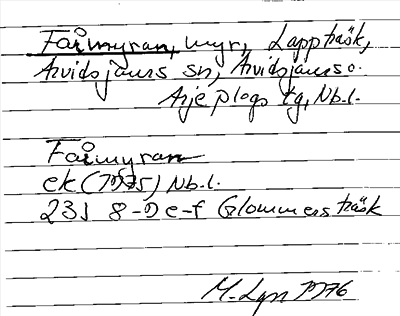 Fårmyran, myr, Lappträsk,
Arvidsjaurs sn, Arvidsjaurs o.
Arjeplogs tg, Nb.l.
Fårmyran
ek (1975) Nb.l.
23J 8-9 e-f Glommersträsk
M. Lgn 1976